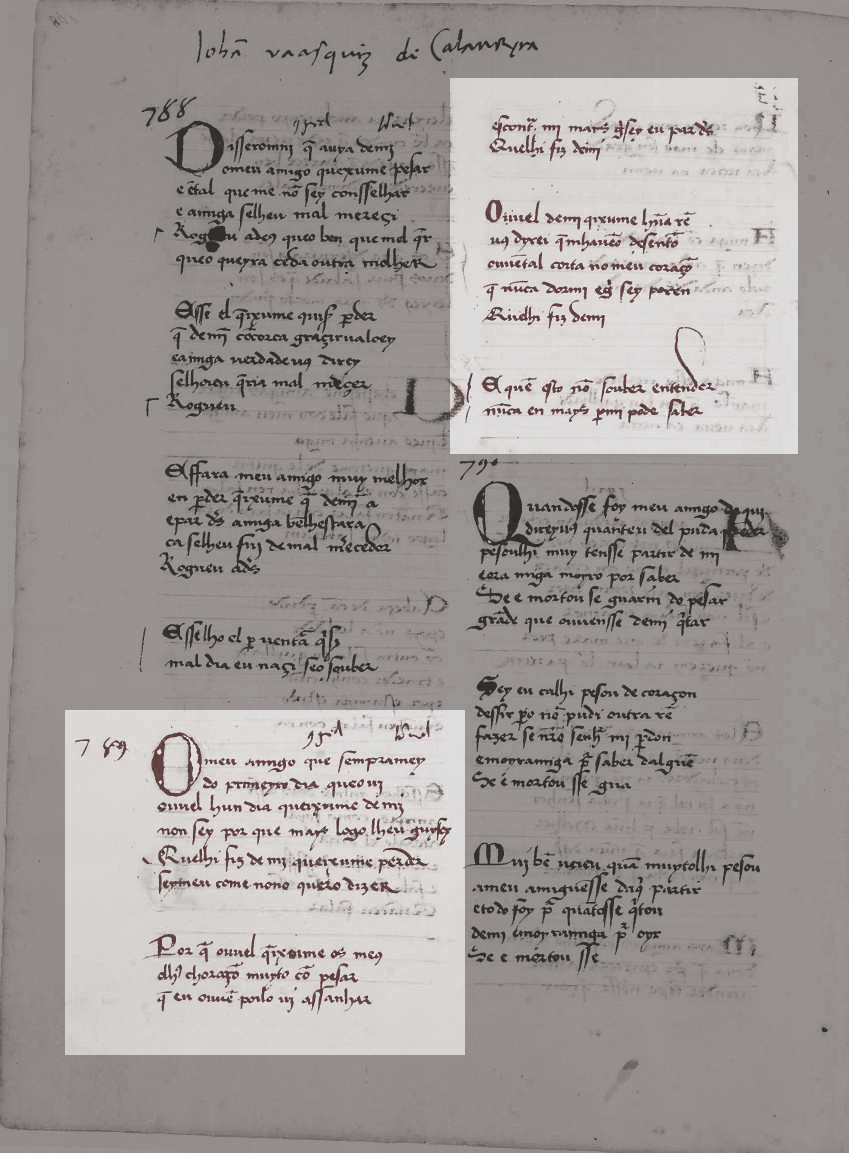 Iohã vaasquiz de Talaveyra
788
Disseromni q̃ avya demi
omeu amigo queixume pesar
e ẽ tal que me nõ sey consselhar
e amiga selheu mal mereçi
Rogueu adeus queo ben que mel q̃r
queo queyra ceda outra molher
Esse el q̃ixume quis p̱der
q̃ demi
e amiga verdade vꝯ direy
selheu q̃ria mal
Rogueu
Essara meu amigo muy melhor
en p̱der q̃ixume q̃ demi a
epar ds̃ amiga bẽ lhestara
ca selheu fuj de mal m̃ecedor
Rogueu ads̃
Esselho el p̱ ventã q̃s
mal dia eu naçi seo souber
789
O meu amigo que sempramey
do primeyro dia queo ui
ouuel hun dia queixume demi
non sey por que mays logo lheu guysey
Quelhi fiz de mi queixume perder
sey meu come nono quero dizer
Por q̃ ouuel q̃ixume os meꝯ
olhꝯ choraçõ muyto cõ pesar
q̃ eu ouuẽ poilo ui assanhar
Escont̃ mi mays q̃sey eu par ds̃
Quelhi fiz demi
Ouuel demi q̃ixume hũa rẽ
uꝯ dyrei q̃ mhaveõ desentõ
ouuẽ tal coita no meu coraçõ
q̃ nũca dormi e g̃ sey poren
Quelhi fiz demi
E quẽ esto nõ souber entender
nũca en mays p̱ mi pode saber
790
Quandosse foy meu amigo daqui
direyuꝯ quanteu del puda prender
pesoulhi muy tensse partir de mi
eora miga moyro por saber
Se e mortou se guariu do pesar
grãde que ouuensse demi q̃tar
Sey eu calhi pesou de coraçon
dessir p̱o nõ pudi outra rẽ
fazer se nr̃o senh̃ mi p̱don
emoyramiga p̃ saber dalguẽ
Se e mortou sse gua
Mui bẽ ueieu quã muytolhi pesou
ameu amiguesse daq̃ partir
etodo foy p̃ quãtosse q̃tou
demi emoyramiga p̃ oyr
Se e mortou sse